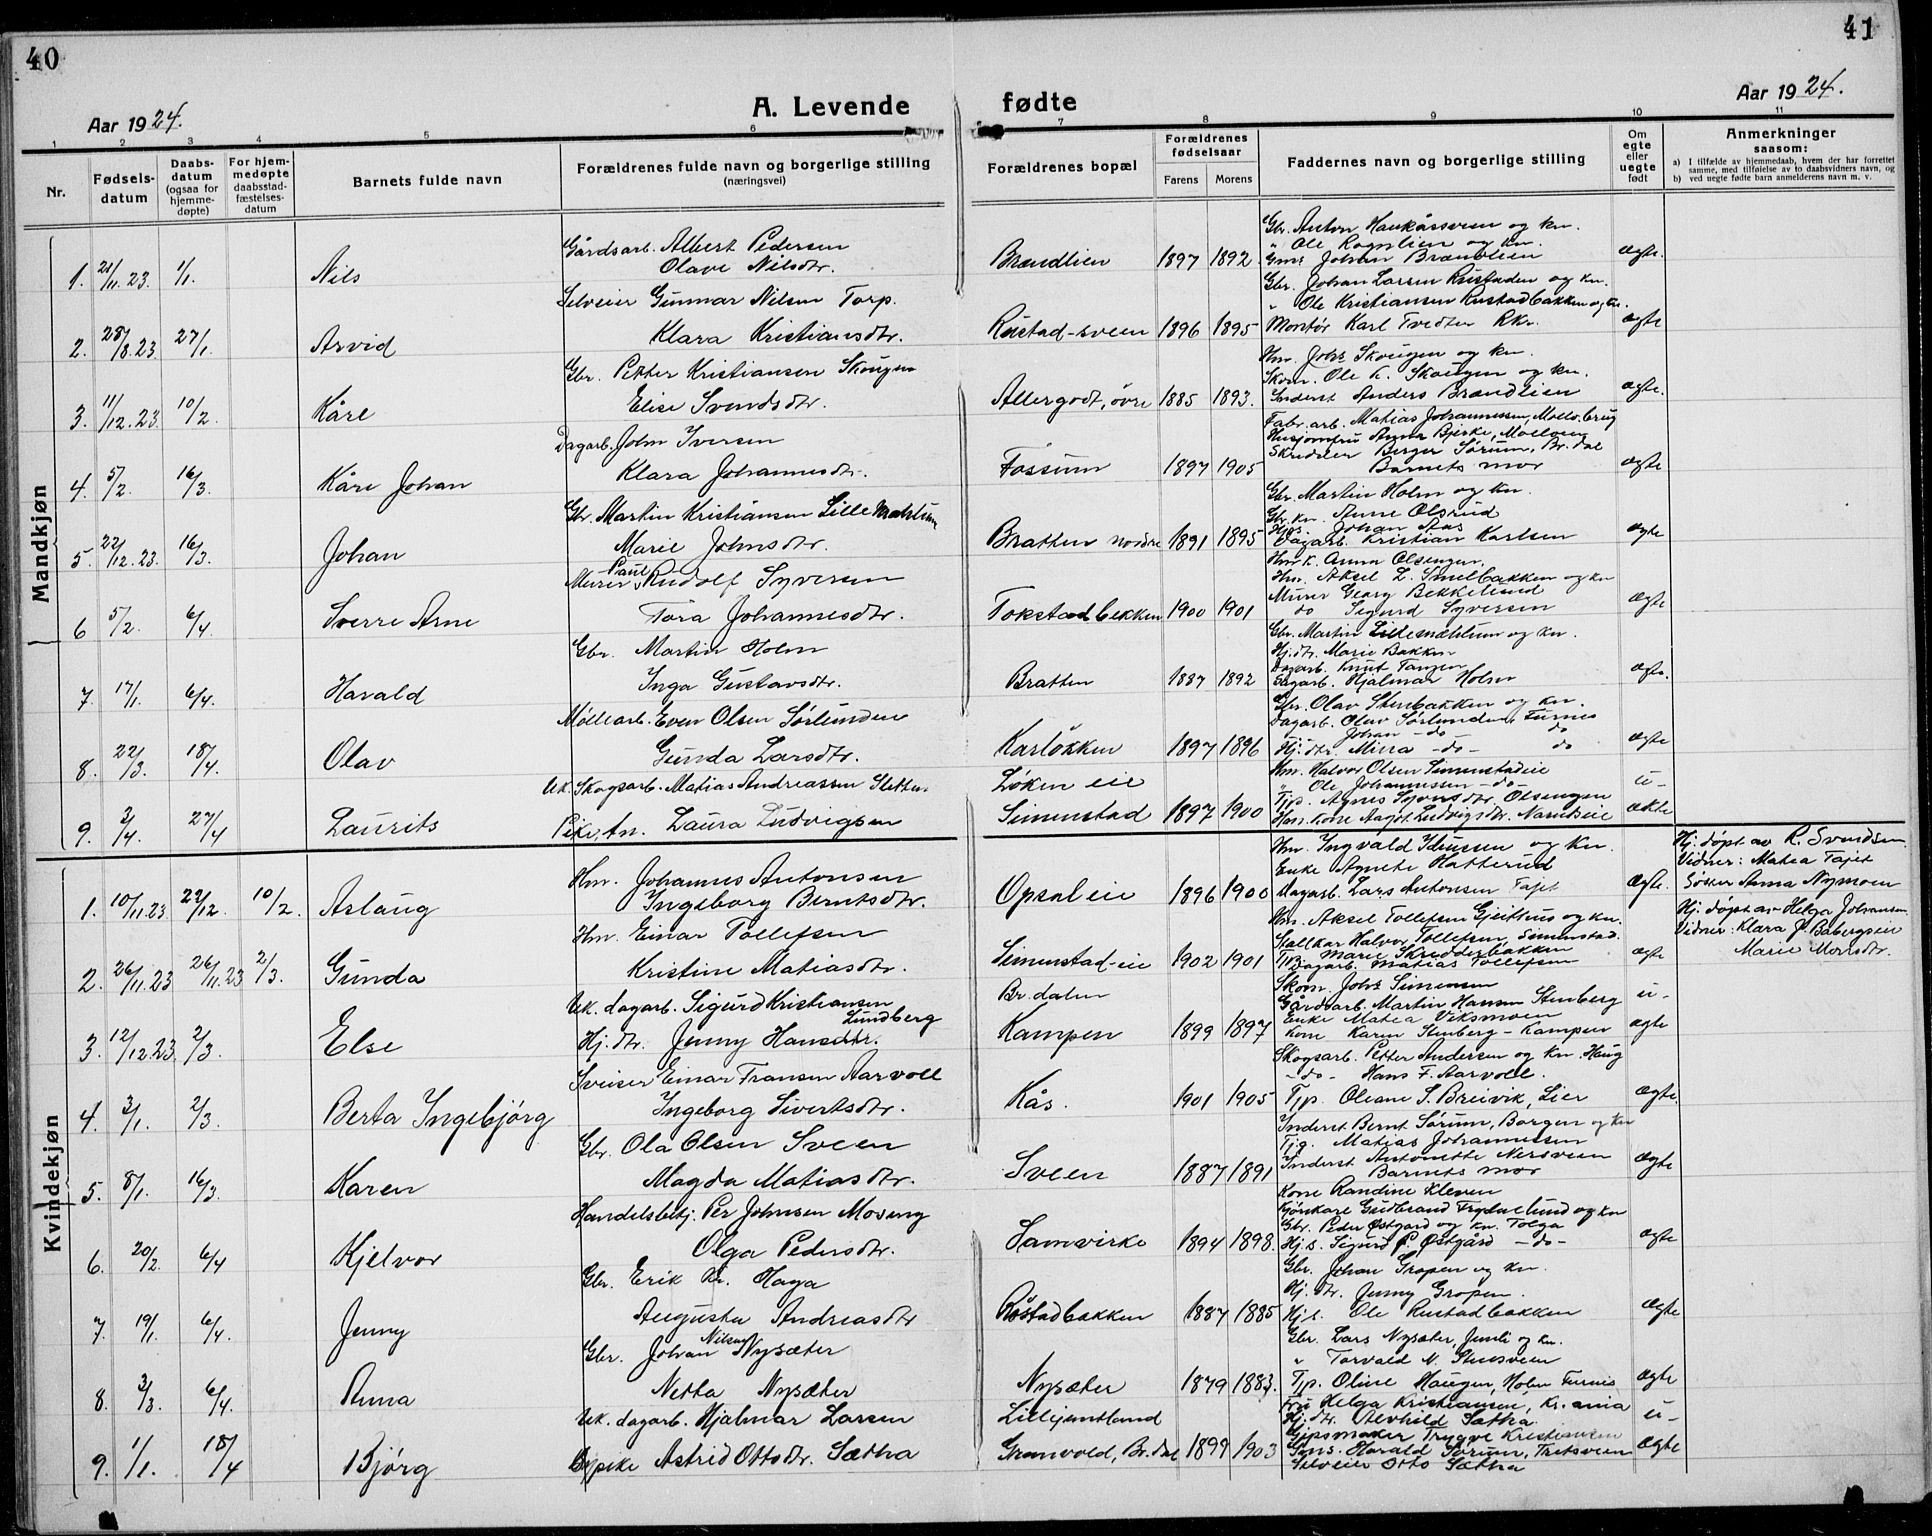 40
41
Aar 1924.
A. Levende fødte
Aar 1924.
1 2 3 4 5 6 7 8 9 10 11
Nr.
Fødselsdatum
Daabsdatum (ogsaa for hjemmedøpte)
For hjemmedøpte daabsstadfæstelsesdatum
Barnets fulde navn
Forældrenes fulde navn og borgerlige stilling (næringsvei)
Forældrenes bopæl
Forældrenes fødselsaar
Farens Morens
Faddernes navn og borgerlige stilling
Om egte eller uegte født
Anmerkninger saasom:
a) I tilfælde av hjemmedaab, hvem der har forrettet samme, med tilføielse av to daabsvidners navn, og
b) ved uegte fødte barn anmelderens navn m. v.
Mandkjøn
1. 21/11.23. 1/1. Nils
Gårdsarb. Albert Pedersen
Olave Nilsdtr.
Brændlien 1897 1892
Gbr. Anton Haukåssveen og kn.
" Ole Rognlien og kn.
Gms. Johan Brændlien
ægte.
2. 28/8.23 27/1. Arvid
Selveier Gunnar Nilsen Torp.
Klara Kristiansdtr.
Rustad-sveen 1896 1895
Gbr. Johan Larsen Rustaden og kn.
" Ole Kristiansen Rustadbakken og kn.
Montør Karl Tvedten Rkr.
ægte
3. 11/12.23. 10/2. Kåre
Gbr. Petter Kristiansen Skougen
Elise Svendsdtr.
Allergodt, øvre 1885 1893.
Hm. Johs Skougen og kn.
Skom. Ole K. Skougen og kn.
Inderst Anders Brændlien
ægte.
4. 5/2. 16/3. Kåre Johan
Dagarb. John Iversen
Klara Johannesdtr.
Fossum 1897 1905
Fabr.arb. Matias Johannessen, Moelv. brug
Husjomfru Anna Bjerke, Moelven
Skrædder Berger Sørum, Br. dal
Barnets mor
ægte
5. 22/12.23. 16/3. Johan
Gbr. Martin Kristiansen Lille Mæhlum
Marie Johnsdtr.
Bratten nordre 1891 1895
Gbr. Martin Holm og kn.
Gbr. kn. Anne Olsrud
Hjs. Johan Aas
Dagarb. Kristian Karlsen
ægte
6 5/2. 6/4. Sverre Arne
Murer Paul Rudolf Syversen
Tora Johannesdtr.
Tokstadbekken 1900 1901
Hm K. Anna Olsengen,
Hm. Aksel L. Smelbakken og kn
Murer Georg Bekkelund
do Sigurd Syversen
ægte
7. 17/1. 6/4. Harald
Gbr. Martin Holm
Inga Gustavsdtr.
Bratten 1887 1892
Gbr. Martin Lillemæhlum og kn.
Hj.dtr. Marie Bakken
Dagarb. Knut Tangen
Dagarb. Hjalmar Holm
ægte.
8. 22/3. 18/4. Olav
Møllearb. Even Olsen Sørlunden
Gunda Larsdtr.
Karløkken 1897 1896
Gbr. Olav Stenbakken og kn.
Dagarb. Olav Sørlunden, Furnes
Johan -do- do
Hj. dtr. Minra -do- do
ægte
9. 3/4. 27/4 Laurits
Uk. Skogsarb. Matias Andreassen Sletten
Pike, An. Laura Ludvigsen
Løken eie
Simenstad 1897 1900
Hm. Halvor Olsen Simenstadeie
" Ole Johannessen -do-
Tjp. Agnes Syversdtr. Olsengen
Hm. Kone Aagot Ludvigsdtr. Narudseie
u-
ekte
Kvindekjøn
1. 10/11.23 22/12. 10/2. Aslaug
Hm. Johannes Antonsen
Ingeborg Berntsdtr.
Opsal eie 1896 1900
Hm. Ingvald Idrussen og kn.
Enke Agnete Hatterud
Dagarb. Lars Antonsen Tajet
ægte.
Hj. døpt av R. Svendsen
Vidner: Matea Tajet
Søster Anna Nymoen
2. 26/11.23 26/11.23 2/3. Gunda
Hm. Einar Tollefsen
Kristine Matiasdtr.
Simenstad-eie 1902 1901
Hm. Aksel Tollefsen Gjeithus og kn.
Stallkar Halvor Tollefsen, Simenstad.
Tjp. Marie Skredderbakken
Dagarb. Matias Tollefsen
ægte
Hj. døpt av Helga Johansen
Vidner: Klara J. Babergseie
Marie Mortsdtr.
3. 12/12.23 2/3. Else
Uk. dagarb. Sigurd Kristiansen Lundberg
Hj. dtr. Jenny Hansdtr.
Br. dalen
Kampen 1899 1897
Skom. Johs Simensen
Gårdsarb. Martin Hansen Stenberg
Enke Matea Viksmoen
Kone Karen Stenberg - Kampen
u-
ægte
4. 3/1. 2/3. Berta Ingebjørg
Sveiser Einar Fransen Aarvoll
Ingeborg Sivertsdtr.
Kås. 1901 1905
Skogsarb. Petter Andersen og kn. Haug
-do- Hans F. Aarvoll.
Tjp. Oleane S. Breivik, Lier
ægte.
5. 8/1. 16/3. Karen
Gbr. Ola Olsen Sveen
Magda Matiasdtr.
Sveen 1887 1891
Inderst Bernt Sørum, Borgen og kn
Tjg. Matias Johannessen
Inderst Antonette Nersveen
Barnets mor
ægte
6. 20/2. 6/4 Kjelvor
Handelsbetj. Per Johnsen Moseng
Olga Pedersdtr.
Samvirke 1894 1898.
Kone Randine Kleven
Gbr. Peder Østgard og kn. Tolga
Hj.s. Sigurd P. Østgård -do-
ægte
7. 19/1. 6/4. Jenny
Gbr. Erik Kr. Haga
Augusta Andreasdtr
Rustadbakken 1887 1885
Gbr. Johan Gropen og kn.
Hj. dtr. Jenny Gropen.
Hj.s. Ole Rustadbakken
ægte
8. 3/3. 6/4. Anna
Gbr. Johan Nilsen Nysæter
Netta Nysæter
Nysæter 1879 1883.
Gbr. Lars Nysæter, Jemli og kn.
" Torvald N. Stensveen
Tjp. Oline Haugen, Holm Furnes
ægte
9. 1/1. 18/4 Bjørg
Uk. dagarb. Hjalmar Larsen
Sypike Astrid Ottosdtr. Sætha
Lillejemtland
Granvold, Br.dal 1899 1903
Fru Helga Kristiansen, Kr.ania
Hj. dtr. Alvhild Sætha
Gipsmaker Trygve Kristiansen
Gms. Harald Sørum, Tretsveen
Selveier Otto Sætha
u-
ægte